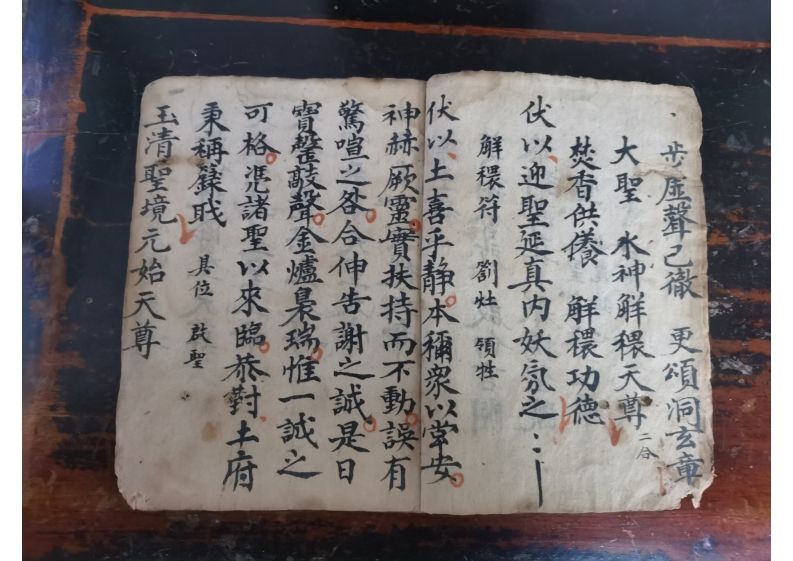 步虛聲已徹 更頌洞玄章
大聖 水神解穢天尊 二合
焚香供儀 解穢功德
伏以迎聖延真内妖氛之
解穢符 劄灶 領牲
伏以土喜乎静本禰衆以常安
神赫厥靈實扶持而不動誤有
驚喧之咎合伸告謝之誠是日
寶磬敲聲金爐裊瑞惟一誠之
可格憑諸聖以來臨恭對土府
秉稱籙职 具位 啟聖
玉清聖境元始天尊